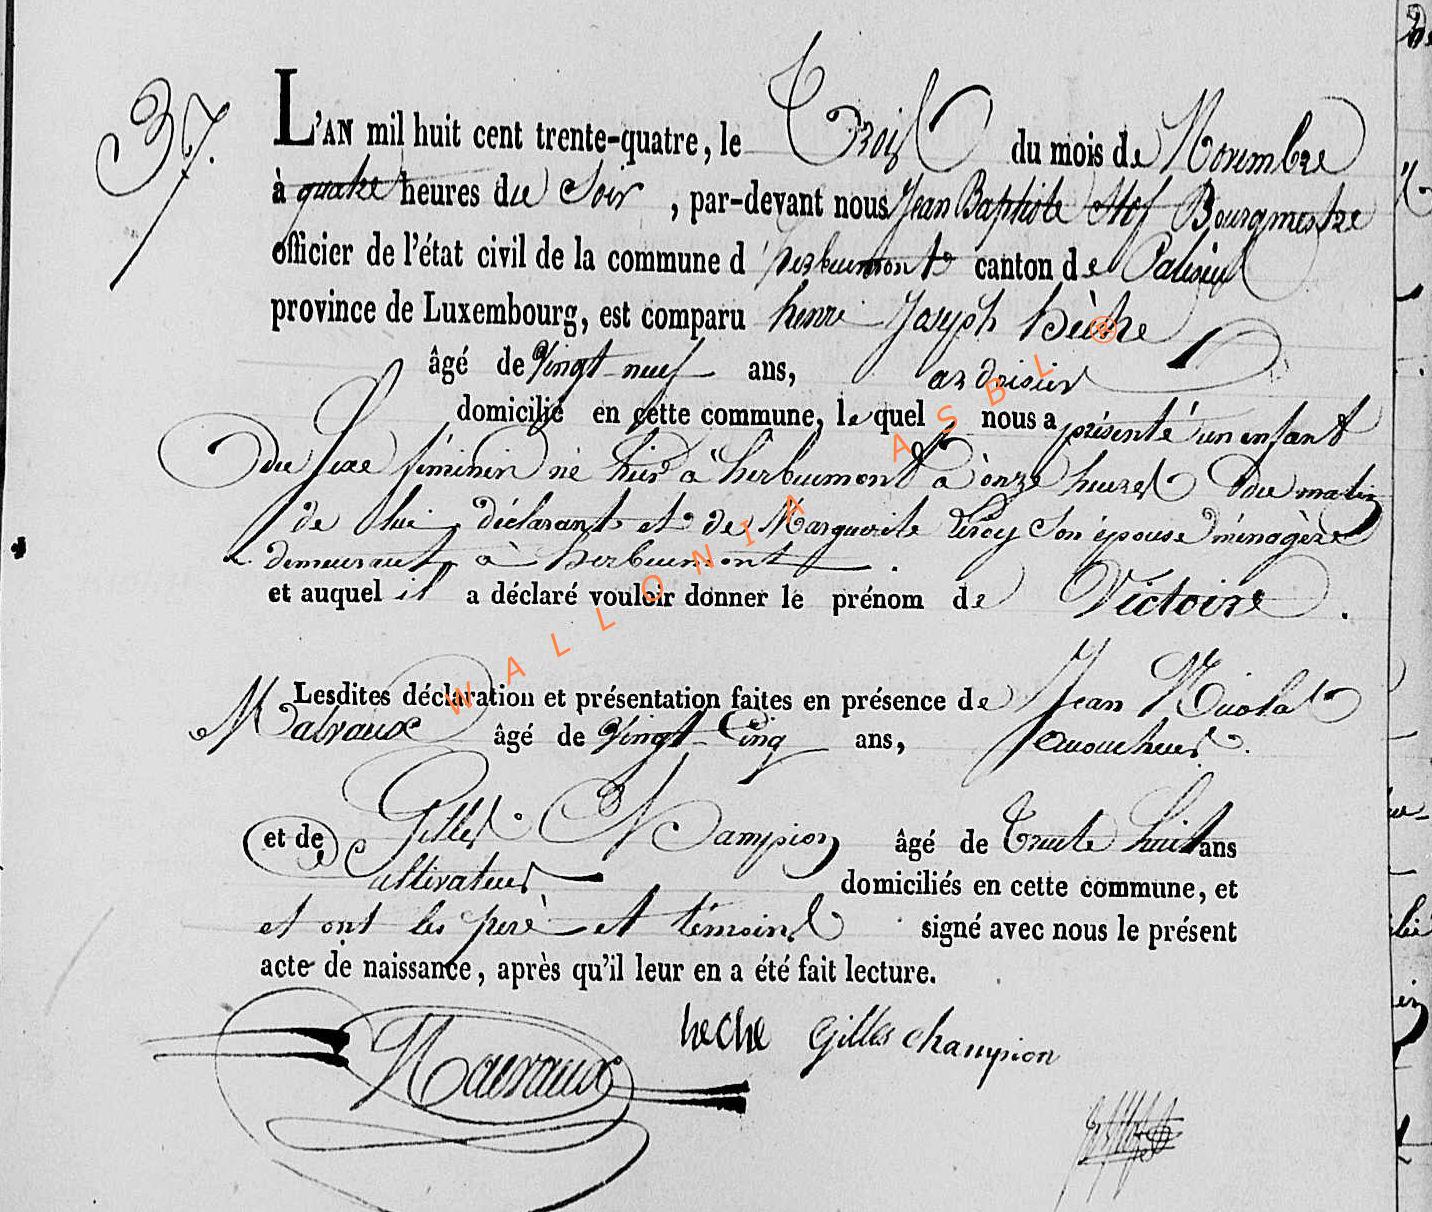 37.
L'AN mil huit cent trente-quatre, le Trois du mois de Novembre
à quatre heures du Soir, par-devant nous Jean Baptiste Bourgmestre
officier de l'état civil de la commune d'herbeumont canton de Paliseul
province de Luxembourg, est comparu henri Joseph hèche
âgé de Vingt neuf ans, ardoisier
domicilié en cette commune, lequel nous a présenté un enfant
du sexe féminin né hier à herbeumont à onze heures du matin
de lui déclarant et de Marguerite son épouse ménagère
demeurant à herbeumont.
et auquel il a déclaré vouloir donner le prénom de Victoire.
Lesdites déclaration et présentation faites en présence de Jean Nicolas
Malvaux âgé de Vingt Cinq ans,
et de Gilles Champion âgé de Trente huit ans
Cultivateur domiciliés en cette commune, et
et ont les père et témoins signé avec nous le présent
acte de naissance, après qu'il leur en a été fait lecture.
heche Gilles champion
Malvaux
WALLONIA ASBL